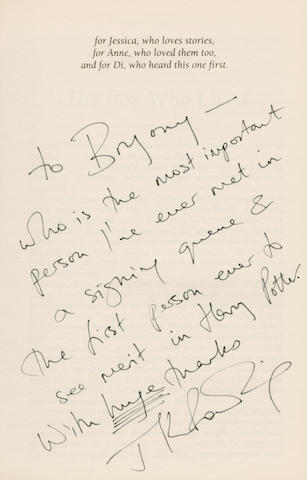 for Jessica, who loves stories,
for Anne, who loved them too,
and for Di, who heard this one first.
The Boy Who Lived
to Bryony –
who is the most important
person I've ever met in
a signing queue &
the first person ever to
see merit in Harry Potter.
With huge thanks
J K Rowling